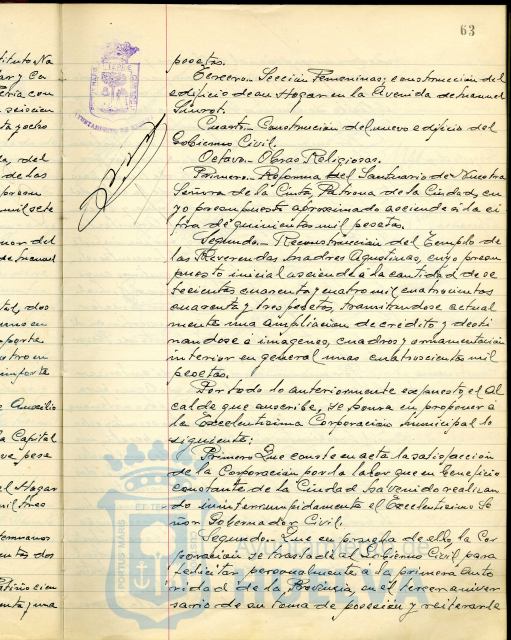 63
pesetas.
Tercero.- Sección Femenina; construcción del
edificio de un Hogar en la Avenida de Manuel
Siurot.
Cuarto.- Construcción del nuevo edificio del
Gobierno Civil.
Octavo.- Obras Religiosas.
Primero.- Reforma del Santuario de Nuestra
Señora de la Cinta, Patrona de la Ciudad, cu
yo presupuesto aproximado asciende á la ci
fra de quinientas mil pesetas.
Segundo.- Reconstrucción del Templo de
las Reverendas Madres Agustinas, cuyo presu
puesto inicial asciende á la cantidad de se
tecientas cuarenta y cuatro mil cuatrocientas
cuarenta y tres pesetas, tramitandose actual
mente una ampliación de crédito y desti
nandose a imagenes, cuadros y ornamentación
interior en general unas cuatrocientas mil
pesetas.
Por todo lo anteriormente expuesto, el Al
calde que suscribe, se honra en proponer á
la Excelentísima Corporación Municipal lo
siguiente:
Primero Que conste en acta la satisfacción
de la Corporación por la labor que en beneficio
constante de la Ciudad ha venido realizan
do ininterrumpidamente el Excelentísimo Se
ñor Gobernador Civil.
Segundo.- Que en prueba de ello, la Cor
poración se traslade al Gobierno Civil para
felicitar personalmente á la primera auto
ridad de la Provincia, en el tercer aniver
sario de su toma de posesión y reiterarle